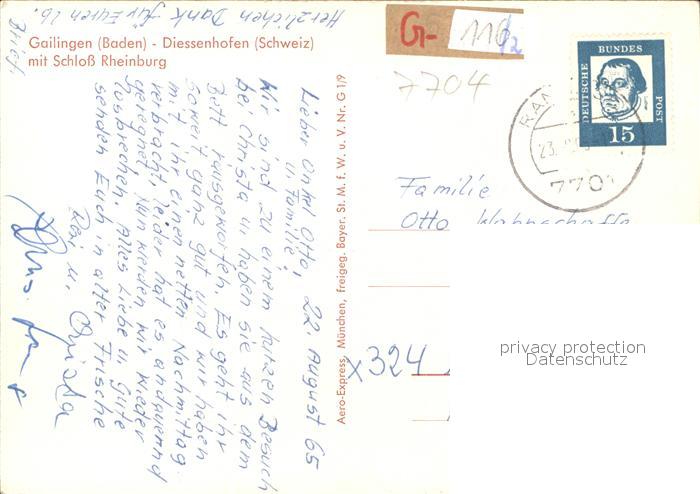 Herzlichen Dank für Euren lb.
Brief.
Gailingen (Baden) - Diessenhofen (Schweiz)
mit Schloß Rheinburg
22 August 65
Lieber Onkel Otto,
u. Familie,
Wir sind zu einem kurzen Besuch
bei Christa u. haben sie aus dem
Bett rausgeworfen. Es geht ihr
soweit ganz gut und wir haben
mit ihr einen netten Nachmittag
verbracht, leider hat es andauernd
geregnet. Nun werden wir wieder
losbrechen. Alles Liebe u. Gute
senden Euch in alter Frische
Resi u. Christa
Aero-Express, München, Freigeg. Bayer. St. M. f. W. u. V. Nr. G 1/9
G-
116/2
7704
DEUTSCHE BUNDES POST
15
23.
7701
Familie
Otto
x324
privacy protection
Datenschutz